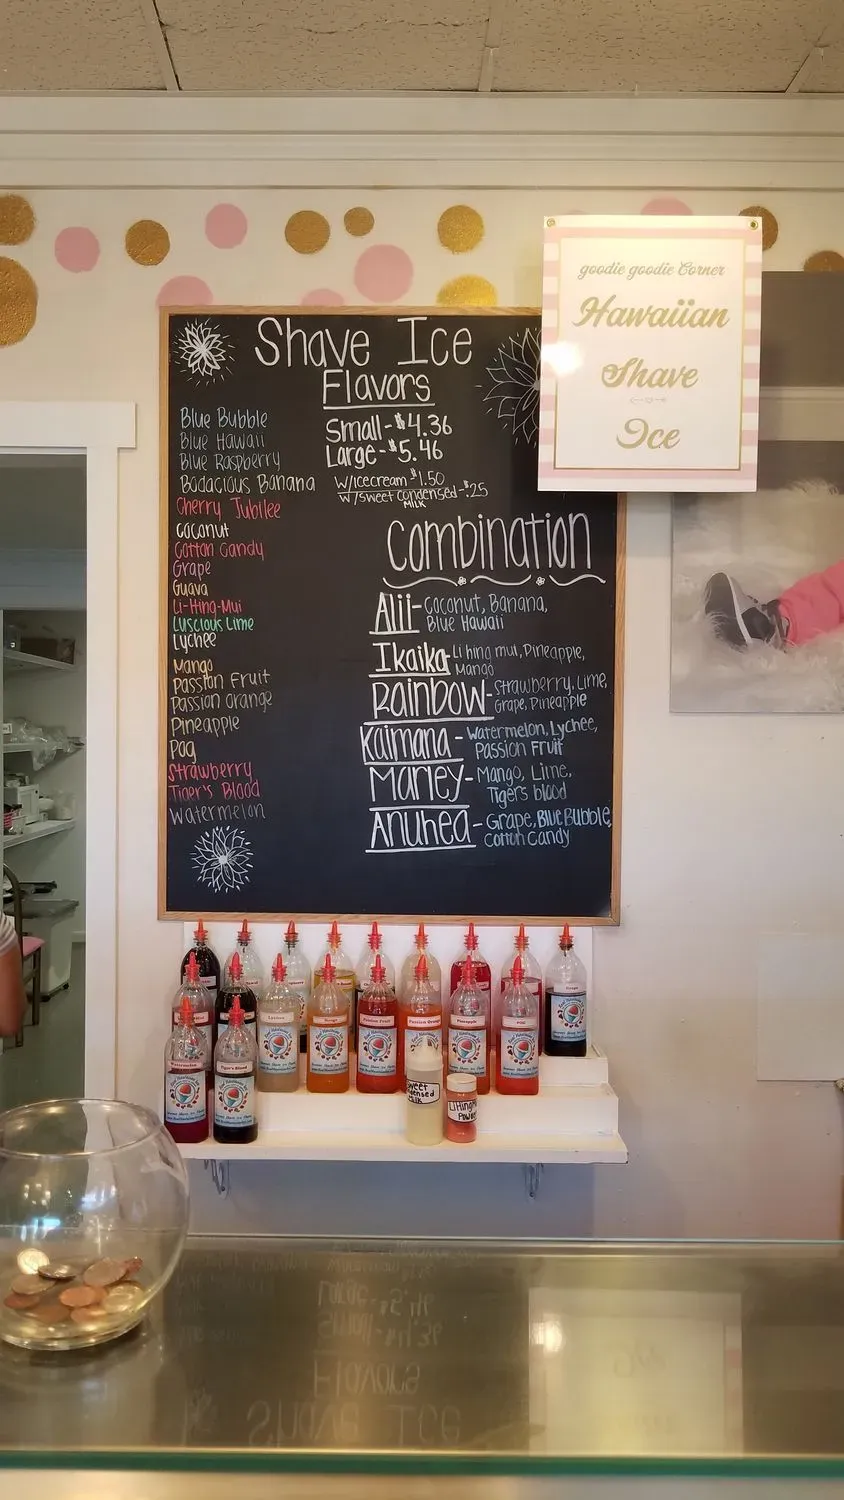 goodie goodie Corner
Hawaiian
Shave
Ice
Shave Ice
Flavors
Small-$4.36
Large-$5.46
W/Icecream $1.50
W/sweet condensed-$.25
MILK
Blue Bubble
Blue Hawaii
Blue Raspberry
Bodacious Banana
Cherry Jubilee
Coconut
Cotton Candy
Grape
Guava
Li-Hing-Mui
Luscious Lime
Lychee
Mango
Passion Fruit
Passion Orange
Pineapple
Pog
Strawberry
Tiger's Blood
Watermelon
Combination
Alii-Coconut, Banana,
Blue Hawaii
Ikaika-Li hing mui, Pineapple,
Mango
Rainbow-Strawberry, Lime,
Grape, Pineapple
Kaimana-Watermelon, Lychee,
Passion Fruit
Marley-Mango, Lime,
Tigers blood
Anuhea-Grape, Blue Bubble,
Cotton Candy
Grape
Lychee
Mango
Passion Fruit
Passion Orange
Pineapple
POG
Watermelon
Tiger's Blood
Sweet
Milk